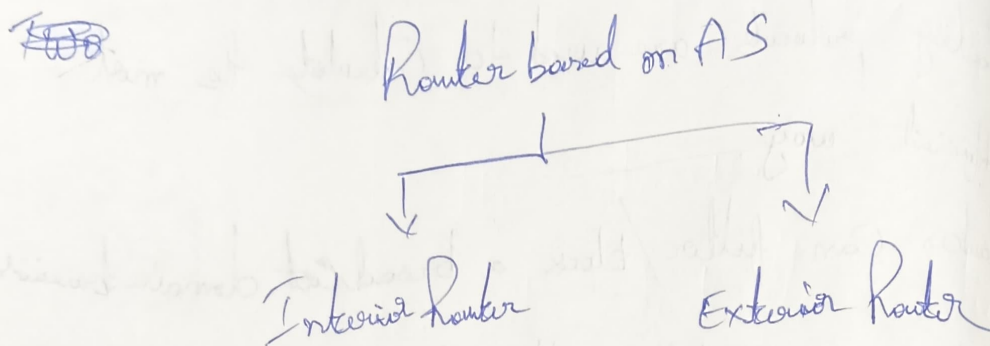 Router based on AS
Interior Router
Exterior Router